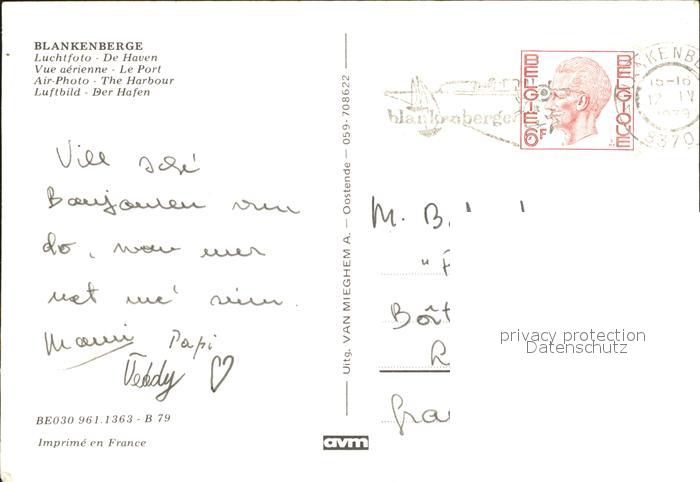 BLANKENBERGE
Luchtfoto - De Haven
Vue aérienne - Le Port
Air-Photo - The Harbour
Luftbild - Der Hafen
Vill
Bonjouren vun
do, wou mer
net mé sinn.
Mami Papi
Teddy
BE030 961.1363 - B 79
Imprimé en France
Uitg. VAN MIEGHEM A. — Oostende — 059-708622
avm
blankenberge
BELGIE BELGIQUE
6F
16-16
12 IV
1979
8370
M. B.
Boît
privacy protection
Datenschutz